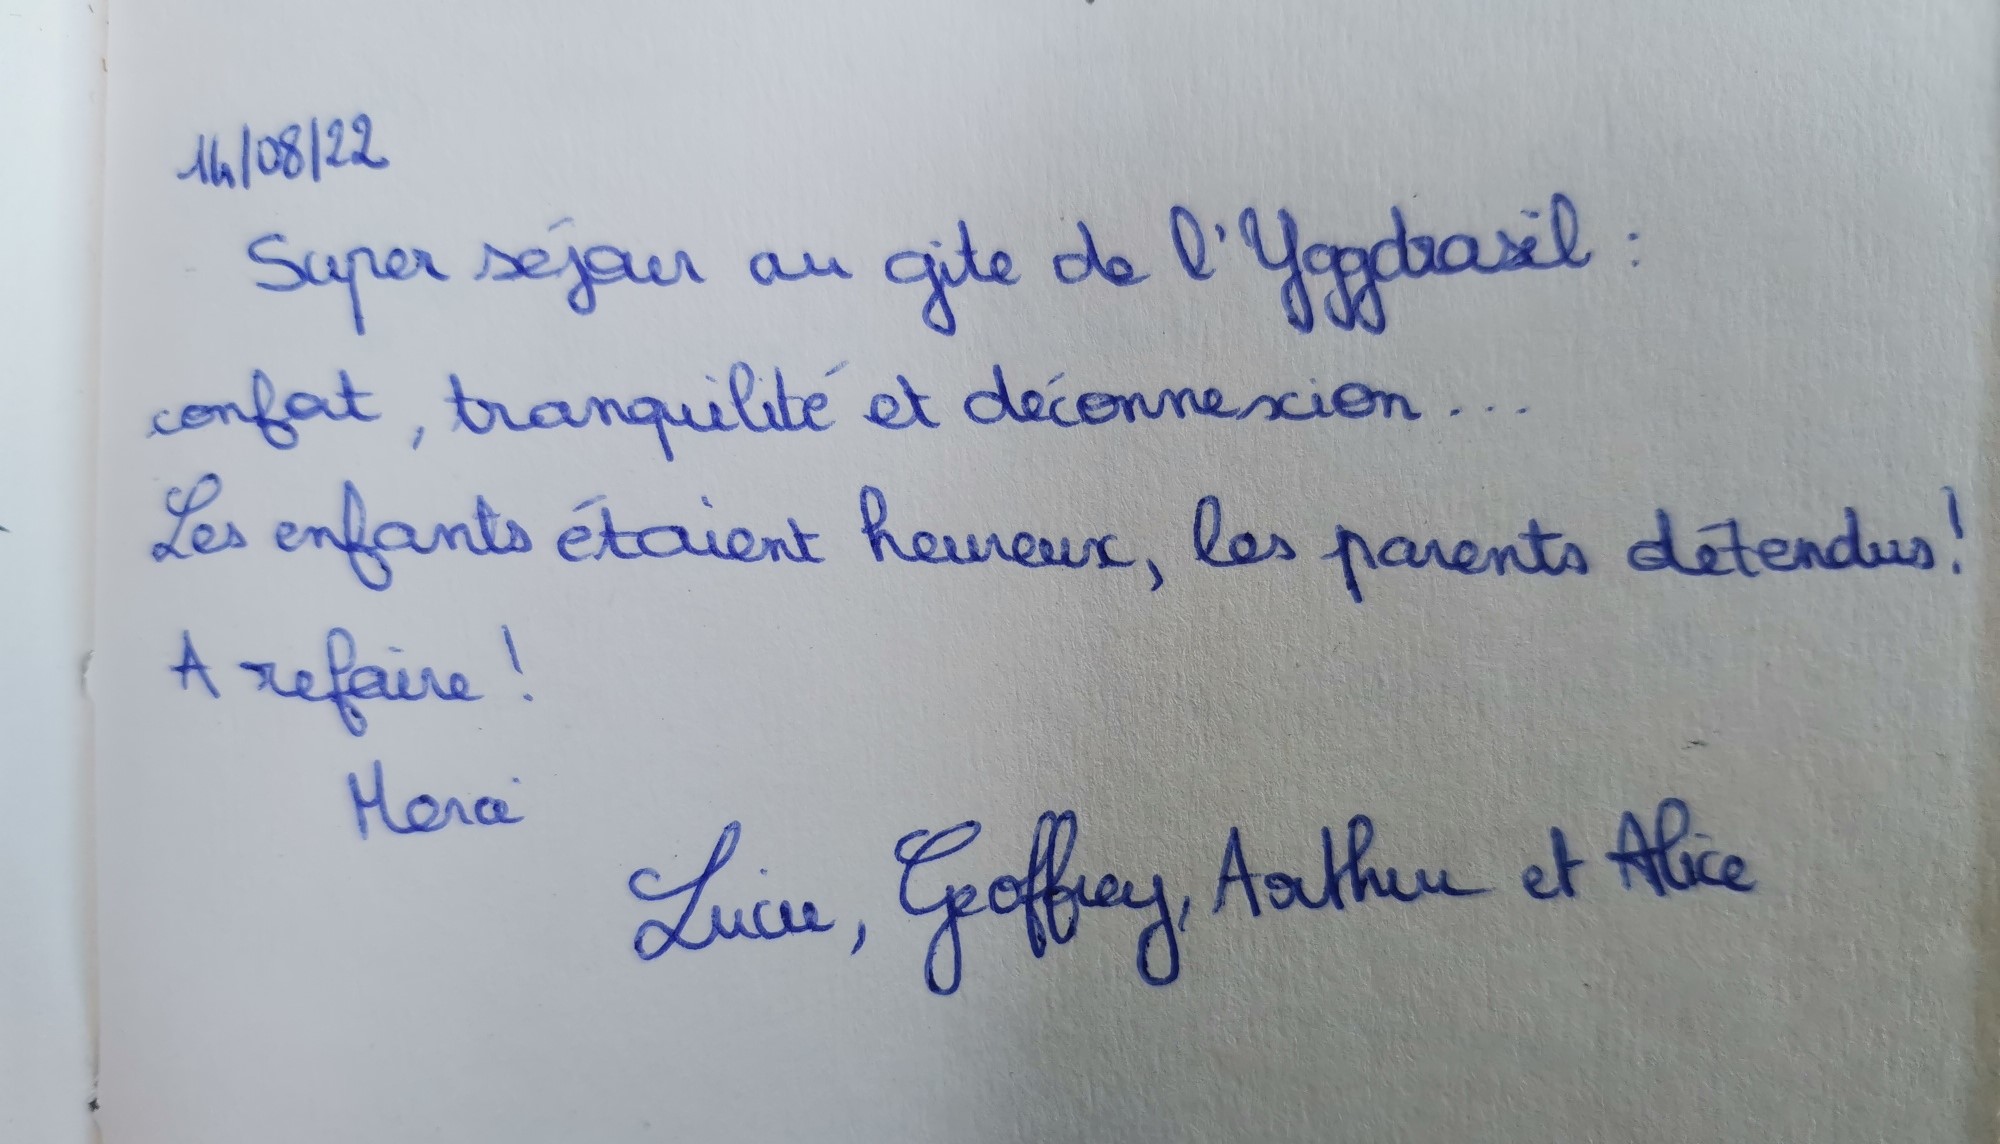 14/08/22
Super séjour au gite de l'Yggdrasil :
confort, tranquilité et déconnexion...
Les enfants étaient heureux, les parents détendus !
A refaire !
Merci
Lucie, Geoffrey, Arthur et Alice